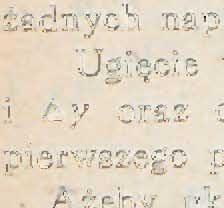 żadnych nap
Ugięcie
i Δy oraz
pierwszego p
Ażeby